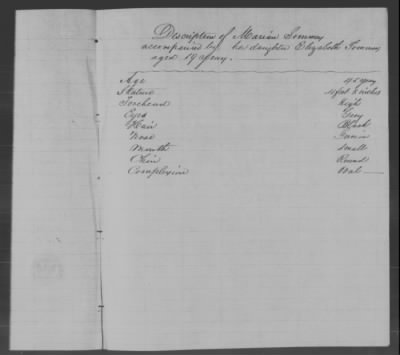 Description of Marian
accompanied by her daughter Elizabeth
aged 19 years.
Age 45 years
Stature 4 feet 8 inches
Forehead high
Eyes Grey
Hair Black
Nose
Mouth small
Chin Round
Complexion Oval